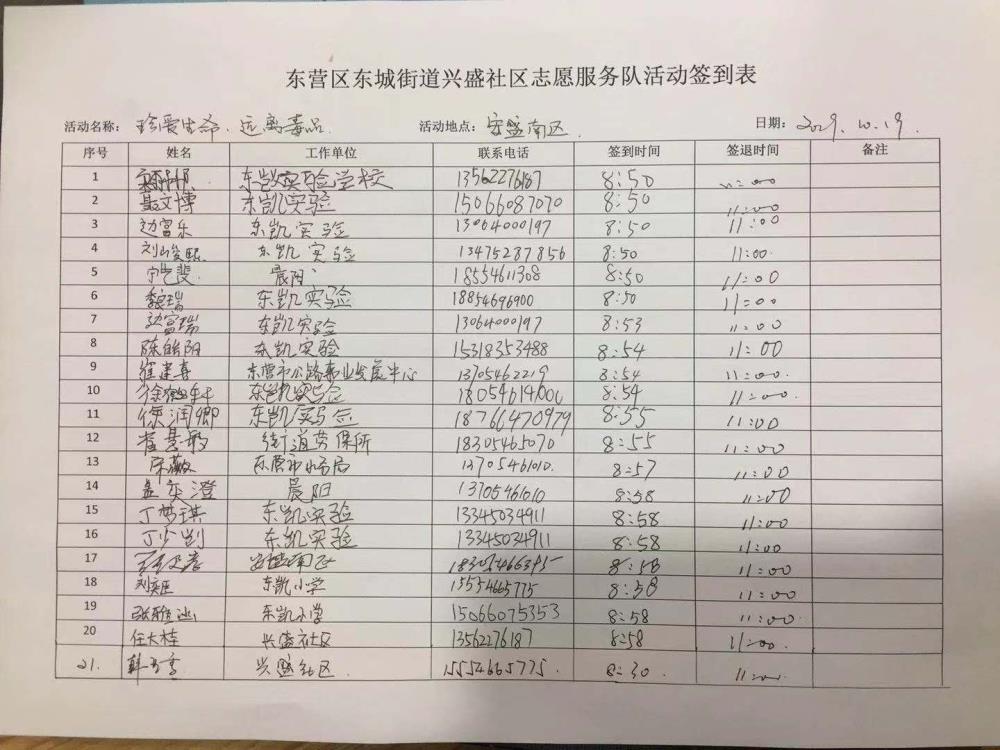 东营区东城街道兴盛社区志愿服务队活动签到表
活动名称： 珍爱生命、远离毒品 活动地点： 安盛南区 日期： 2019.10.19.
序号 姓名 工作单位 联系电话 签到时间 签退时间 备注
1 东凯实验学校 13562276187 8:50 11:00
2 聂文博 东凯实验 15066087070 8:50 11:00
3 边富乐 东凯实验 13064000197 8:50 11:00
4 刘峻熙 东凯实验 13475287856 8:50 11:00
5 晨阳 18554611308 8:50 11:00
6 魏瑞 东凯实验 18854696900 8:50 11:00
7 边富瑞 东凯实验 13064000197 8:53 11:00
8 陈皓阳 东凯实验 15318353488 8:54 11:00
9 崔建春 东营市公路事业发展中心 13705462219 8:54 11:00
10 东凯实验 8:54 11:00
11 徐润卿 东凯实验 18766470979 8:55 11:00
12 街道劳保所 18305465070 8:55 11:00
13 宋薇 东营市水务局 13705461010. 8:57 11:00
14 孟奕澄 晨阳 13705461010 8:58 11:00
15 丁梦琪 东凯实验 13345034911 8:58 11:00
16 丁少剀 东凯实验 13345034911 8:58 11:00
17 安盛南区 8:58 11:00
18 刘奕匡 东凯小学 15554665775 8:58 11:00
19 东凯小学 15066075353 8:58 11:00
20 任大桂 兴盛社区 13562276187 8:58 11:00
21. 兴盛社区 15554665775. 8:30 11:00